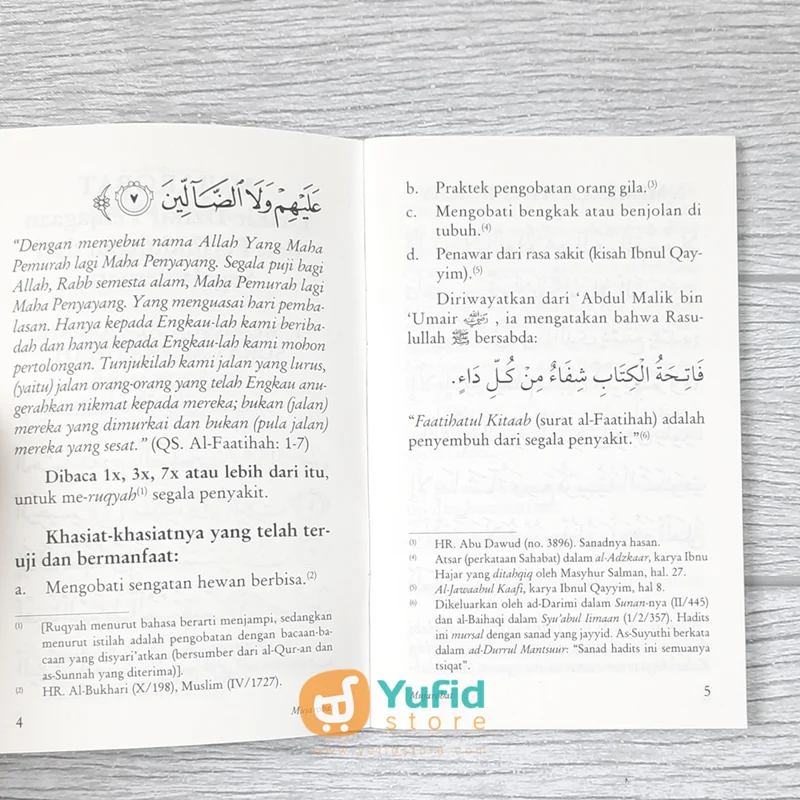 عَلَيْهِمْ وَلَا ٱلضَّآلِّينَ ٧
"Dengan menyebut nama Allah Yang Maha
Pemurah lagi Maha Penyayang. Segala puji bagi
Allah, Rabb semesta alam, Maha Pemurah lagi
Maha Penyayang. Yang menguasai hari pemba-
lasan. Hanya kepada Engkau-lah kami beriba-
dah dan hanya kepada Engkau-lah kami mohon
pertolongan. Tunjukilah kami jalan yang lurus,
(yaitu) jalan orang-orang yang telah Engkau anu-
gerahkan nikmat kepada mereka; bukan (jalan)
mereka yang dimurkai dan bukan (pula jalan)
mereka yang sesat." (QS. Al-Faatihah: 1-7)
Dibaca 1x, 3x, 7x atau lebih dari itu,
untuk me-ruqyah(1) segala penyakit.
Khasiat-khasiatnya yang telah ter-
uji dan bermanfaat:
a. Mengobati sengatan hewan berbisa.(2)
(1) [Ruqyah menurut bahasa berarti menjampi, sedangkan
menurut istilah adalah pengobatan dengan bacaan-ba-
caan yang disyari'atkan (bersumber dari al-Qur-an dan
as-Sunnah yang diterima)].
(2) HR. Al-Bukhari (X/198), Muslim (IV/1727).
4
b. Praktek pengobatan orang gila.(3)
c. Mengobati bengkak atau benjolan di
tubuh.(4)
d. Penawar dari rasa sakit (kisah Ibnul Qay-
yim).(5)
Diriwayatkan dari 'Abdul Malik bin
'Umair رضي الله عنه, ia mengatakan bahwa Rasu-
lullah ﷺ bersabda:
فَاتِحَةُ الْكِتَابِ شِفَاءٌ مِنْ كُلِّ دَاءٍ.
"Faatihatul Kitaab (surat al-Faatihah) adalah
penyembuh dari segala penyakit."(6)
(3) HR. Abu Dawud (no. 3896). Sanadnya hasan.
(4) Atsar (perkataan Sahabat) dalam al-Adzkaar, karya Ibnu
Hajar yang ditahqiq oleh Masyhur Salman, hal. 27.
(5) Al-Jawaabul Kaafi, karya Ibnul Qayyim, hal 8.
(6) Dikeluarkan oleh ad-Darimi dalam Sunan-nya (II/445)
dan al-Baihaqi dalam Syu'abul Iimaan (1/2/357). Hadits
ini mursal dengan sanad yang jayyid. As-Suyuthi berkata
dalam ad-Durrul Mantsuur: "Sanad hadits ini semuanya
tsiqat".
5
Yufid
store
www.yufidstore.com